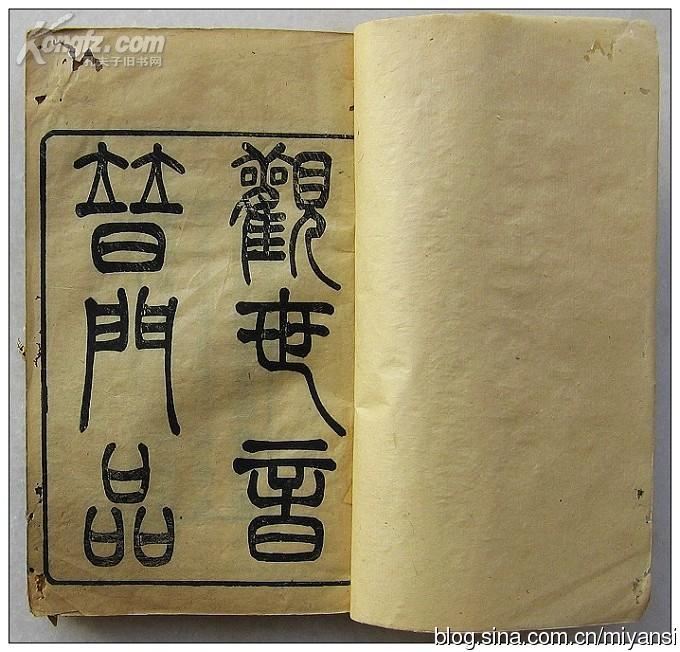 觀世音
普門品
Kongfz.com
孔夫子旧书网
blog.sina.com.cn/miyansi